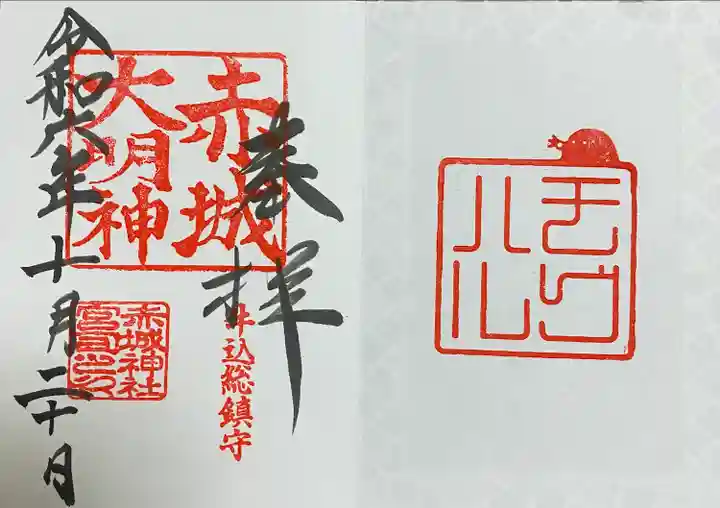 奉拝
赤城
大明神
牛込総鎮守
赤城神社
宮司之印
令和六年十月二十日
ハル